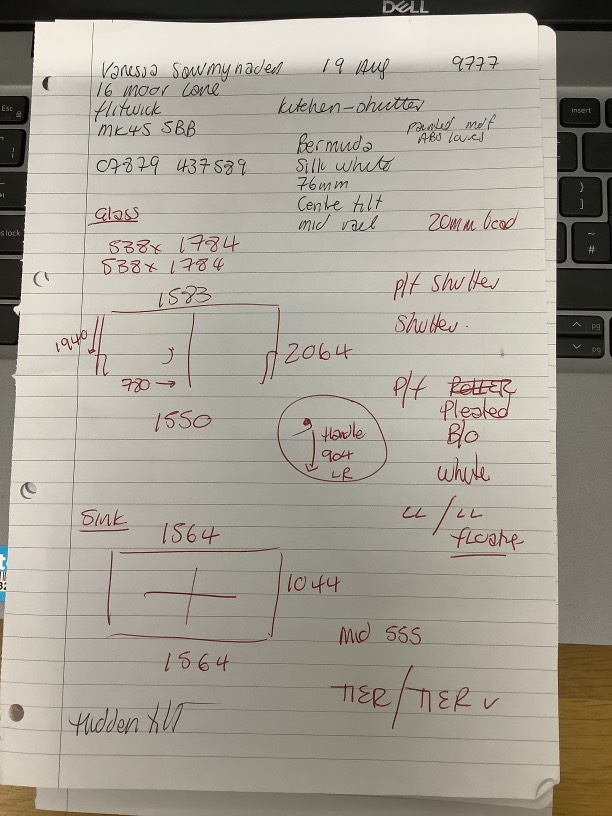 DELL
Vanessa Sowmynaden 19 Aug 9777
16 moor Lane
flitwick kitchen-shutter
MK45 5BB
painted mdf
ABS louvres
Bermuda
07879 437589 Silk white
76mm
Centre tilt
Glass mid rael 20mm bead
538x 1784
538x 1784
P/f shutter
1583
Shutter.
1940
2064
780 →
1550
P/f
Pleated
B/O
Handle
904
LR
white
LL / LL
floating
Sink
1564
1044
mid 555
1564
TIER/TIER
Hidden tilt
Esc
insert
pg
pg